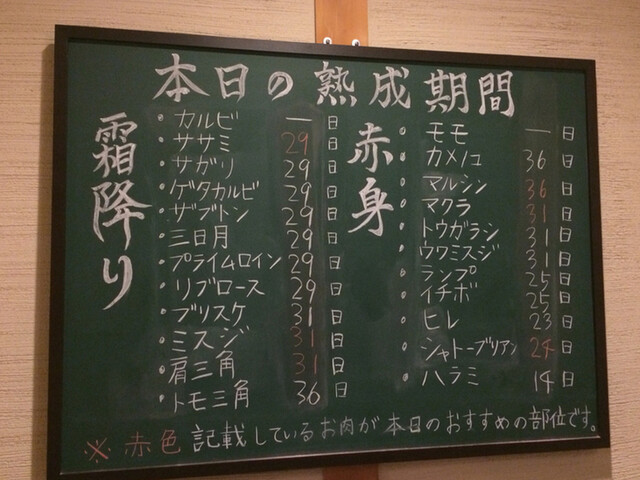 本日の熟成期間
霜降り
・カルビ 一日
・ササミ 29日
・サガリ 29日
・ゲタカルビ 29日
・ザブトン 29日
・三日月 29日
・プライムロイン 29日
・リブロース 29日
・ブリスケ 31日
・ミスジ 31日
・肩三角 31日
・トモ三角 36日
赤身
・モモ 一日
・カメノコ 36日
・マルシン 36日
・マクラ 31日
・トウガラシ 31日
・ウワミスジ 31日
・ランプ 25日
・イチボ 25日
・ヒレ 23日
・シャトーブリアン 24日
・ハラミ 14日
※赤色記載しているお肉が本日のおすすめの部位です。